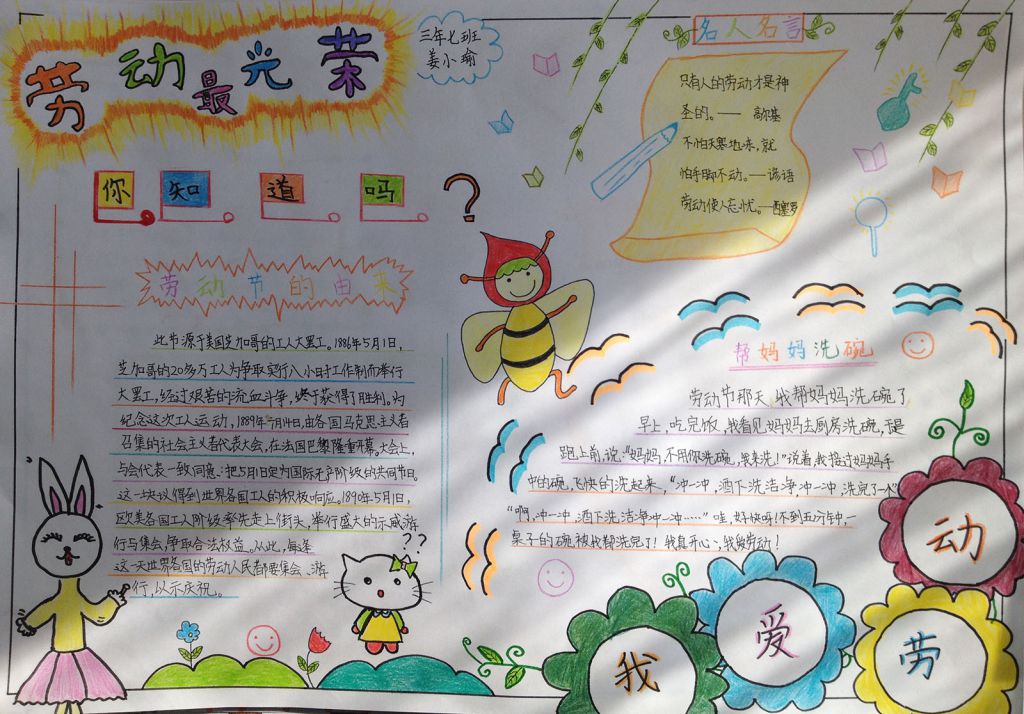 劳动最光荣
三年七班
姜小瑜
名人名言
只有人的劳动才是神
圣的。——高尔基
不怕天寒地冻,就
怕手脚不动。——谚语
劳动使人忘忧。——西塞罗
你知道吗?
劳动节的由来
此节源于美国芝加哥的工人大罢工。1886年5月1日,
芝加哥的20多万工人为争取实行八小时工作制而举行
大罢工,经过艰苦的流血斗争,终于获得了胜利。为
纪念这次工人运动,1889年7月14日,由各国马克思主义者
召集的社会主义者代表大会,在法国巴黎隆重开幕。大会上,
与会代表一致同意:把5月1日定为国际无产阶级的共同节日。
这一决议得到世界各国工人的积极响应。1890年5月1日,
欧美各国工人阶级率先走上街头,举行盛大的示威游
行与集会,争取合法权益。从此,每逢
这一天世界各国的劳动人民都要集会、游
行,以示庆祝。
??
帮妈妈洗碗
劳动节那天,我帮妈妈洗碗了
早上,吃完饭,我看见妈妈去厨房洗碗,于是
跑上前,说:“妈妈,不用你洗碗,我来洗!”说着,我接过妈妈手
中的碗,飞快的洗起来,“冲一冲,洒下洗洁净,冲一冲,洗完了一个”
“啊,冲一冲,洒下洗洁净冲一冲……”哇,好快呀!不到五分钟,一
桌子的碗被我帮洗完了!我真开心,我爱劳动!
我爱劳动